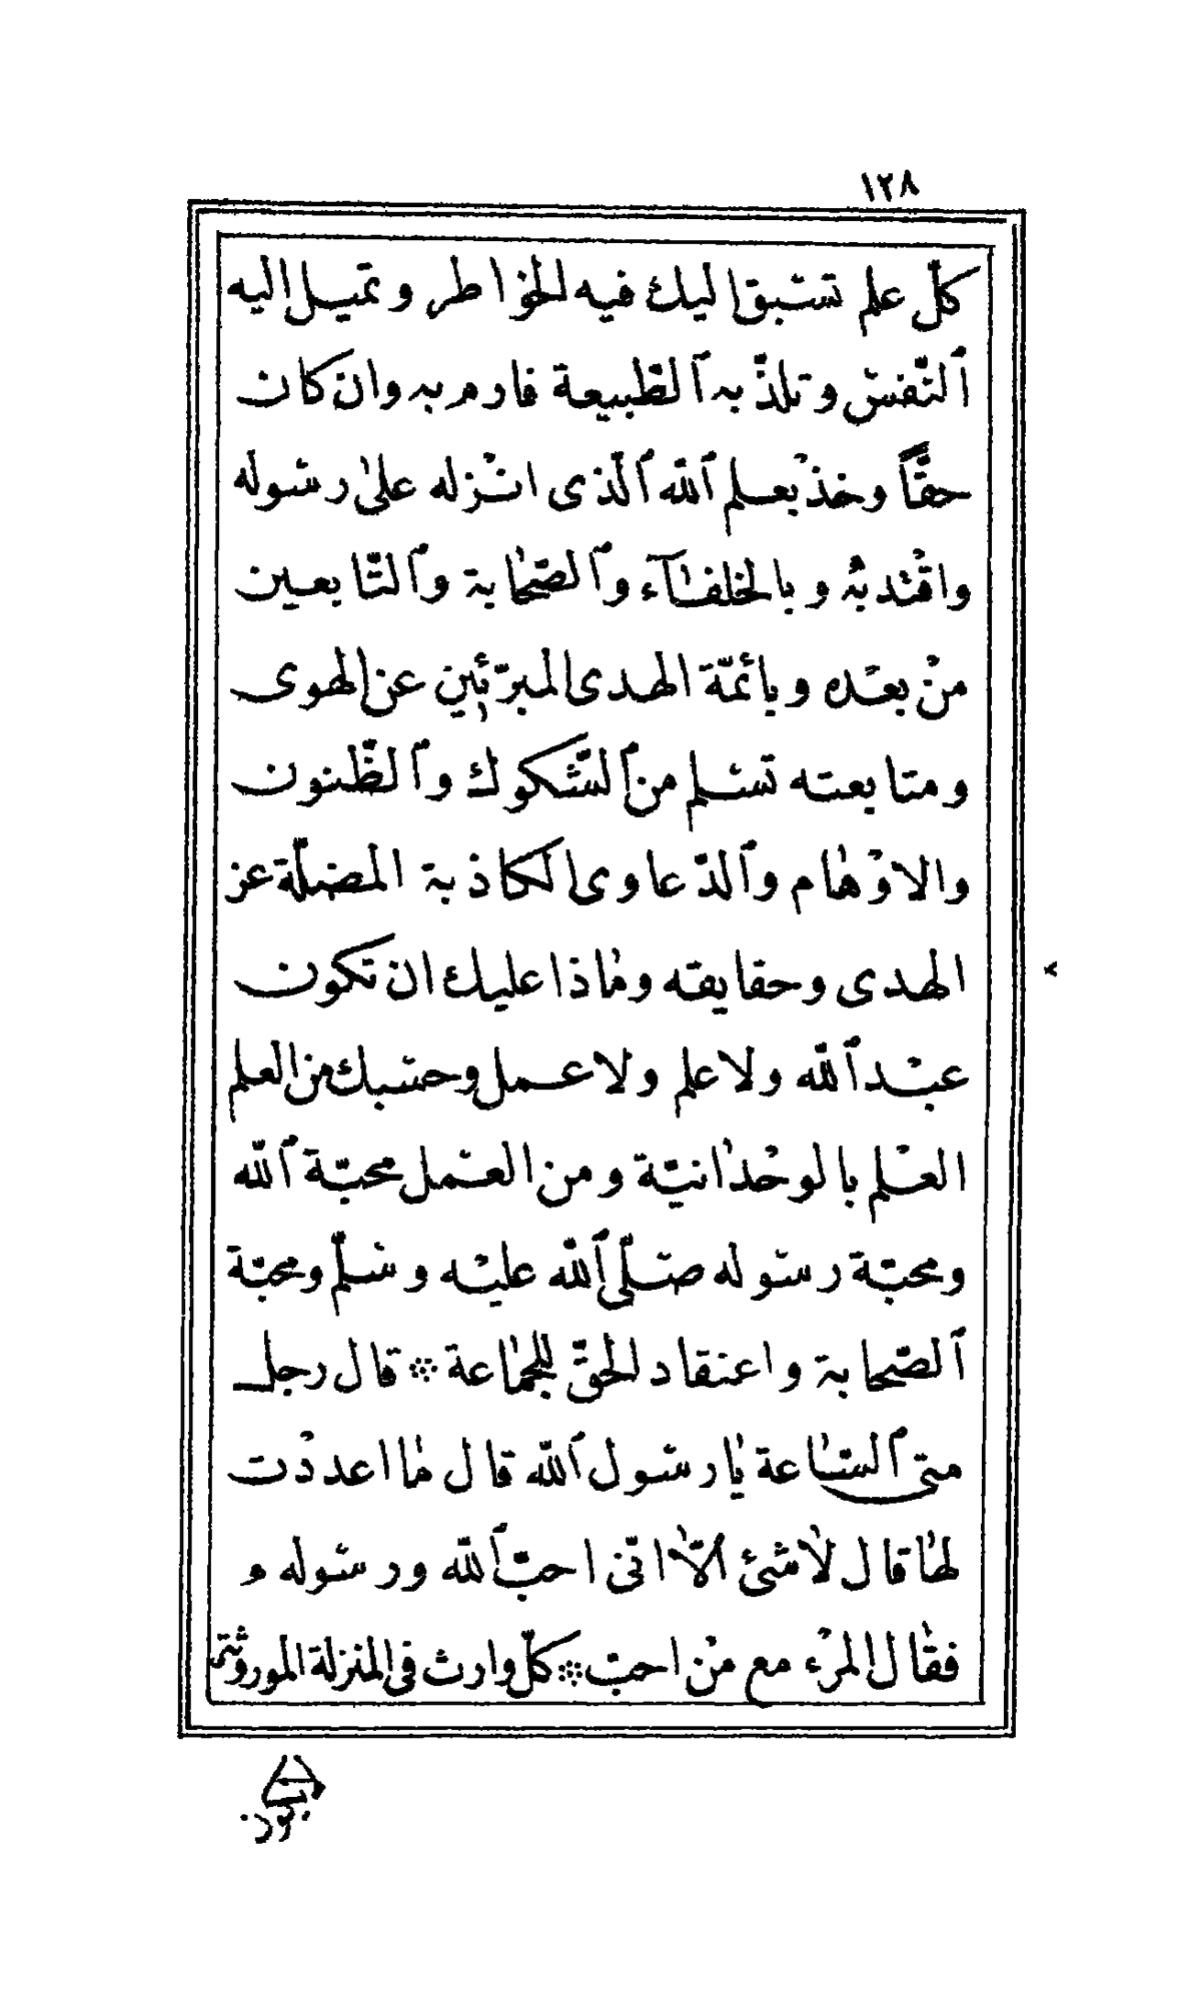 ١٢٨
كلّ علم تسبق اليك فيه الخواطر وتميل اليه
ٱلنّفس وتلذّ به ٱلطّبيعة فارم به وان كان
حقّاً وخذ بعلم ٱللّه ٱلّذى انزله على رسوله
واقتد به وبالخلفآء وٱلصّحابة وٱلتّابعين
من بعده وبائمّة الهدى المبرّئين عن الهوى
ومتابعته تسلم من ٱلشّكوك وٱلظّنون
والاوهام وٱلدّعاوى الكاذبة المضلّة عن
الهدى وحقايقه وماذا عليك ان تكون
عبد ٱللّه ولا علم ولا عمل وحسبك من العلم
العلم بالوحدانيّة ومن العمل محبّة ٱللّه
ومحبّة رسوله صلّى ٱللّه عليه وسلّم ومحبّة
ٱلصّحابة واعتقاد الحقّ للجماعة ⁘ قال رجل
متى ٱلسّاعة يا رسول ٱللّه قال ما اعددت
لها قال لا شئ الّا انّى احبّ ٱللّه ورسوله م
فقال المرء مع من احبّ ⁘ كلّ وارث فى المنزلة الموروثة